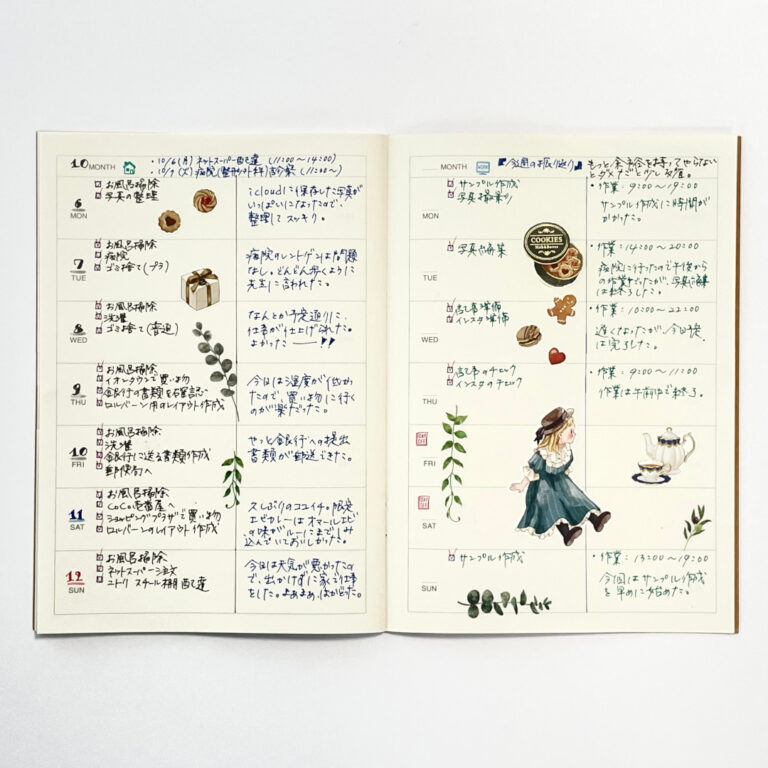 10 MONTH
・10/6(月) ネットスーパー配達 (11:00〜14:00)
・10/7(火) 病院(整形外科)診察 (11:00〜)
6
MON
お風呂掃除
写真の整理
icloudに保存した写真が
いっぱいになったので、
整理してスッキリ。
7
TUE
お風呂掃除
病院
ゴミ捨て(プラ)
病院のレントゲンは問題
なし。どんどん歩くように
先生に言われた。
8
WED
お風呂掃除
洗濯
ゴミ捨て(普通)
なんとか予定通りに、
仕事が仕上げられた。
よかった
9
THU
お風呂掃除
イオンタウンで買い物
銀行の書類を確認
ロルバーン用のレイアウト作成
今日は湿度が低かっ
たので、買い物に行く
のが楽だった。
10
FRI
お風呂掃除
洗濯
銀行に送る書類作成
郵便局へ
やっと銀行への提出
書類が郵送できた。
11
SAT
お風呂掃除
CoCo壱番屋へ
ショッピングプラザで買い物
ロルバーンのレイアウト作成
久しぶりのココイチ。限定
エビカレーはオマールエビ
の味がルーにまでしみ
込んでいておいしかった。
12
SUN
お風呂掃除
ネットスーパー注文
ニトリ スチール棚配達
今日は天気が悪かったの
で、出かけずに家で仕事
をした。まあまあ、はかどった。
MONTH
WORK
今週の振り返り
もっと余裕を持ってやらない
とダメだと少し反省。
MON
サンプル作成
写真撮影
・作業：9:00〜19:00
サンプル作成に時間が
かかった。
TUE
写真編集
COOKIES
・作業：14:00〜20:00
病院に行ったので午後から
の作業だったが、写真編集
は終了した。
WED
記事準備
インスタ準備
・作業：10:00〜22:00
遅くなったが、今日予定
は完了した。
THU
記事のチェック
インスタのチェック
・作業：9:00〜11:00
作業は午前中で終了。
FRI
DAY OFF
SAT
DAY OFF
SUN
サンプル作成
・作業：13:00〜19:00
今回はサンプル作成
を早めに始めた。